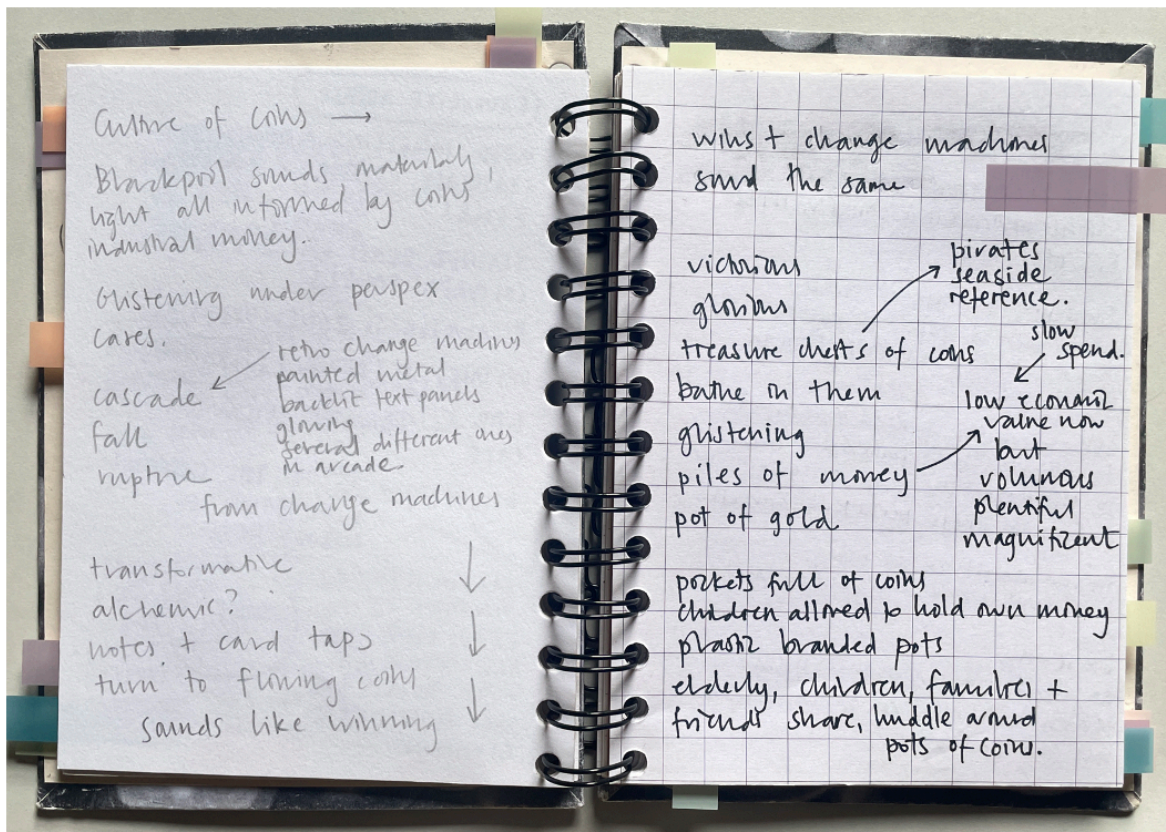 Culture of coins →
Blackpool sounds materiality,
light all informed by coins
industrial money..
Glistening under perspex
cares.
retro change machines
painted metal
backlit text panels
glowing
several different ones
in arcade
cascade
fall
rupture
from change machines
transformative
alchemic?
notes + card taps
turn to flowing coins
sounds like winning
wins + change machines
sound the same
victorious
glorious
treasure chests of coins
bathe in them
glistening
piles of money
pot of gold
pirates
seaside
reference.
slow
spend.
low economic
value now
but
volumous
plentiful
magnificent
pockets full of coins
children allowed to hold own money
plastic branded pots
elderly, children, families +
friends share, huddle around
pots of coins.